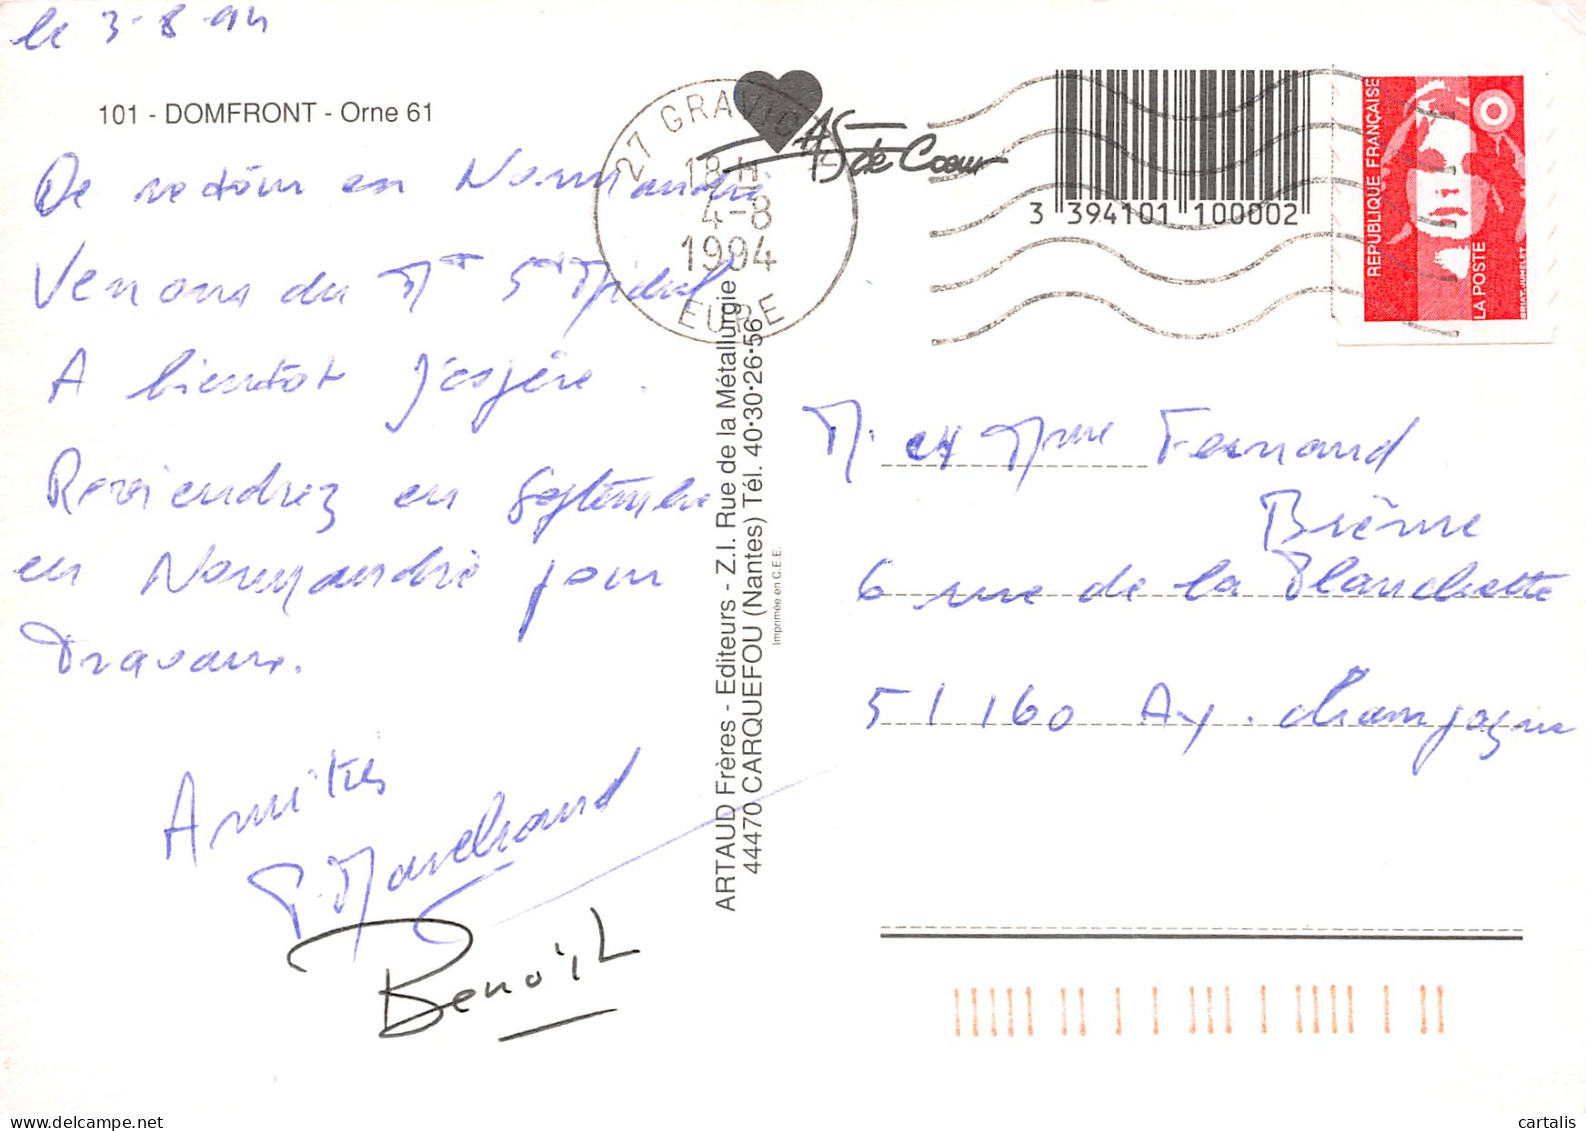 le 3-8-94
101 - DOMFRONT - Orne 61
De retour en Normandie
Venons du Mt St Michel
A bientot j'espère.
Reviendrez en Septembre
en Normandie pour
travaux.
Amitiés
P. Marchand
Benoit
27 GRAVIG
18 H
4-8
1994
EURE
AS de Coeur
3 394101 100002
REPUBLIQUE FRANÇAISE
LA POSTE
BRIAT-JUMELET
ARTAUD Frères - Editeurs - Z.I. Rue de la Métallurgie
44470 CARQUEFOU (Nantes) Tél. 40·30·26·56
Imprimée en C.E.E.
M. et Mme Fernand
6 rue de la Planchette
51160 Ay. Champagne
cartalis.com